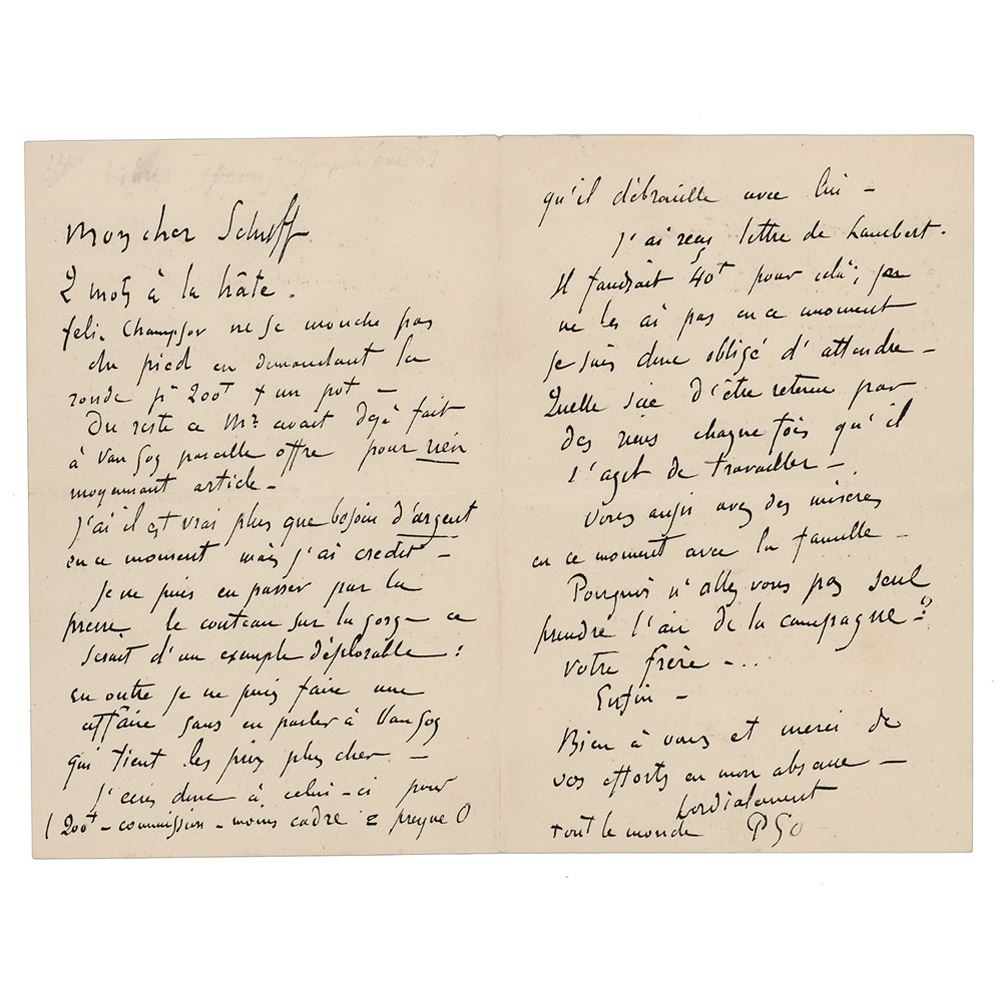 Mon cher Schuff
2 mots à la hâte.
felix Champsor ne se mouche pas
du pied en demandant la
ronde pr 200f + un pot –
Du reste ce Mr avait déjà fait
à Van Gog pareille offre pour rien
moyennant article –
J'ai il est vrai plus que besoin d'argent
en ce moment mais j'ai credit –
Je ne puis en passer par la
presse, le couteau sur la gorge – ce
serait d'un exemple déplorable :
en outre je ne puis faire une
affaire sans en parler à Van Gog
qui tient les prix plus cher –
J'ecris donc à celui-ci pour
( 200f – commission – moins cadre = presque 0
qu'il débrouille avec lui –
J'ai reçu lettre de Laubert.
Il faudrait 40f pour celà; je
ne les ai pas en ce moment
je suis donc obligé d'attendre –
Quelle scie d'être retenu par
des riens chaque fois qu'il
s'agit de travailler –
Vous aussi avez des miseres
en ce moment avec la famille –
Pourquoi n'allez vous pas seul
prendre l'air de la campagne –?
Votre frère – ...
Enfin –
Bien à vous et merci de
vos efforts en mon absence –
Cordialement
tout le monde PGo